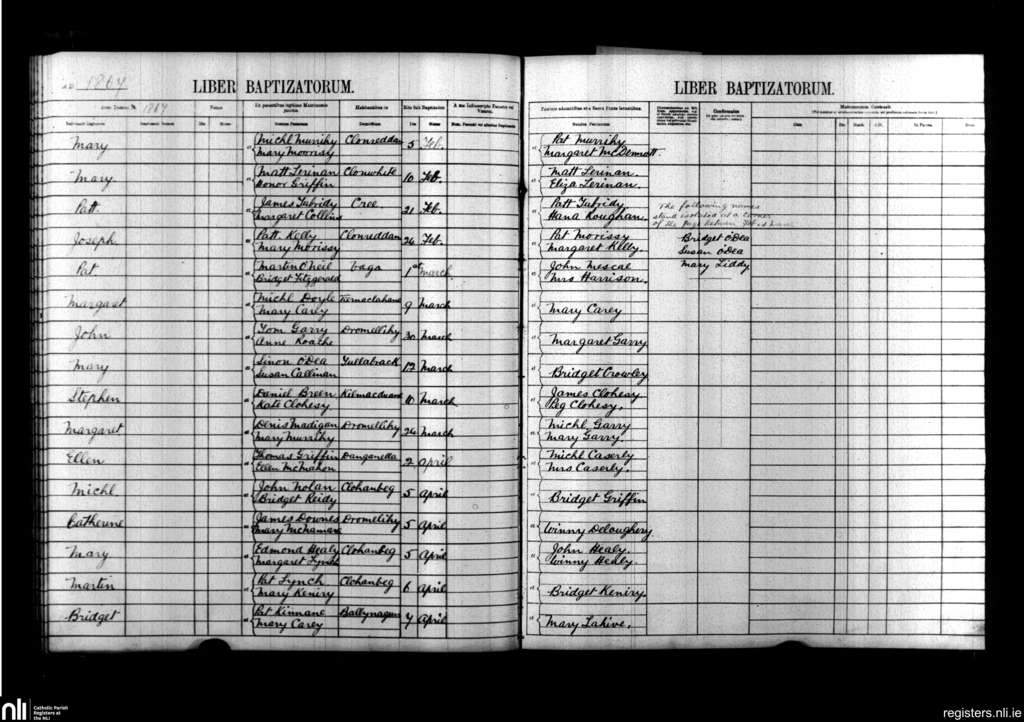 A.D. 1867
LIBER BAPTIZATORUM.
LIBER BAPTIZATORUM.
Anno Domini 1867
Mary
Michl Murrihy Clonreddan 5 Feb.
Mary Moorisy
Pat Murrihy
Margaret McDermott.
Mary
Matt Lerinan Clonwhite 10 Feb.
Honor Griffin
Matt Lerinan.
Eliza Lerinan.
Patt.
James Tubridy Cree. 21 Feb.
Margaret Collins
Patt Tubridy
Hana Koughan.
The following names
stand isolated at a corner
of the page between Feb. &
Joseph
Patt Kelly Clonreddan 26 Feb.
Mary Morissy
Pat Morissy
Margaret Kelly.
Bridget O'Dea
Susan O'Dea
Mary Liddy
Pat
Martin O'Neil 1st March
Bridget Fitzgerald
John Mescal
Mrs Harrison.
Margaret
Michl Doyle Tiernaclahane 9 March
Mary Carey
Mary Carey
John
Tom Garry Dromellihy 30 March
Anne Roache
Margaret Garry
Mary
Sinon O'Dea Tullabrack 17 March
Susan Callinan
Bridget Crowley
Stephen
Daniel Breen Kilmacduane 10 March
Kate Clohesy
James Clohesy
Peg Clohesy.
Margaret
Denis Madigan Dromellihy 24 March
Mary Murrihy
Michl Garry
Mary Garry.
Ellen
Thomas Griffin Danganella 2 April
Ellen McMahon
Michl Caserly
Mrs Caserly.
Michl
John Nolan Clohanbeg 5 April
Bridget Reidy
Bridget Griffin
Catherine
James Downes Dromelihy 5 April
Mary McNamara
Winny Deloughery.
Mary
Edmond Healy Clohanbeg 5 April
Margaret Lynch
John Healy.
Winny Healy.
Martin
Pat Lynch Clohanbeg 6 April
Mary Keniry
Bridget Keniry.
Bridget
Pat Kinnane Ballynagun 7 April
Mary Carey
Mary Lahive.
nli
Catholic Parish
Registers at
the NLI
registers.nli.ie